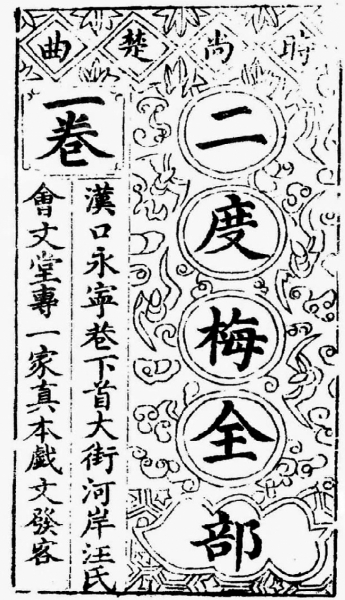 時尚楚曲
二度梅全部
一卷
漢口永寧巷下首大街河岸汪氏
會文堂專一家真本戲文發客